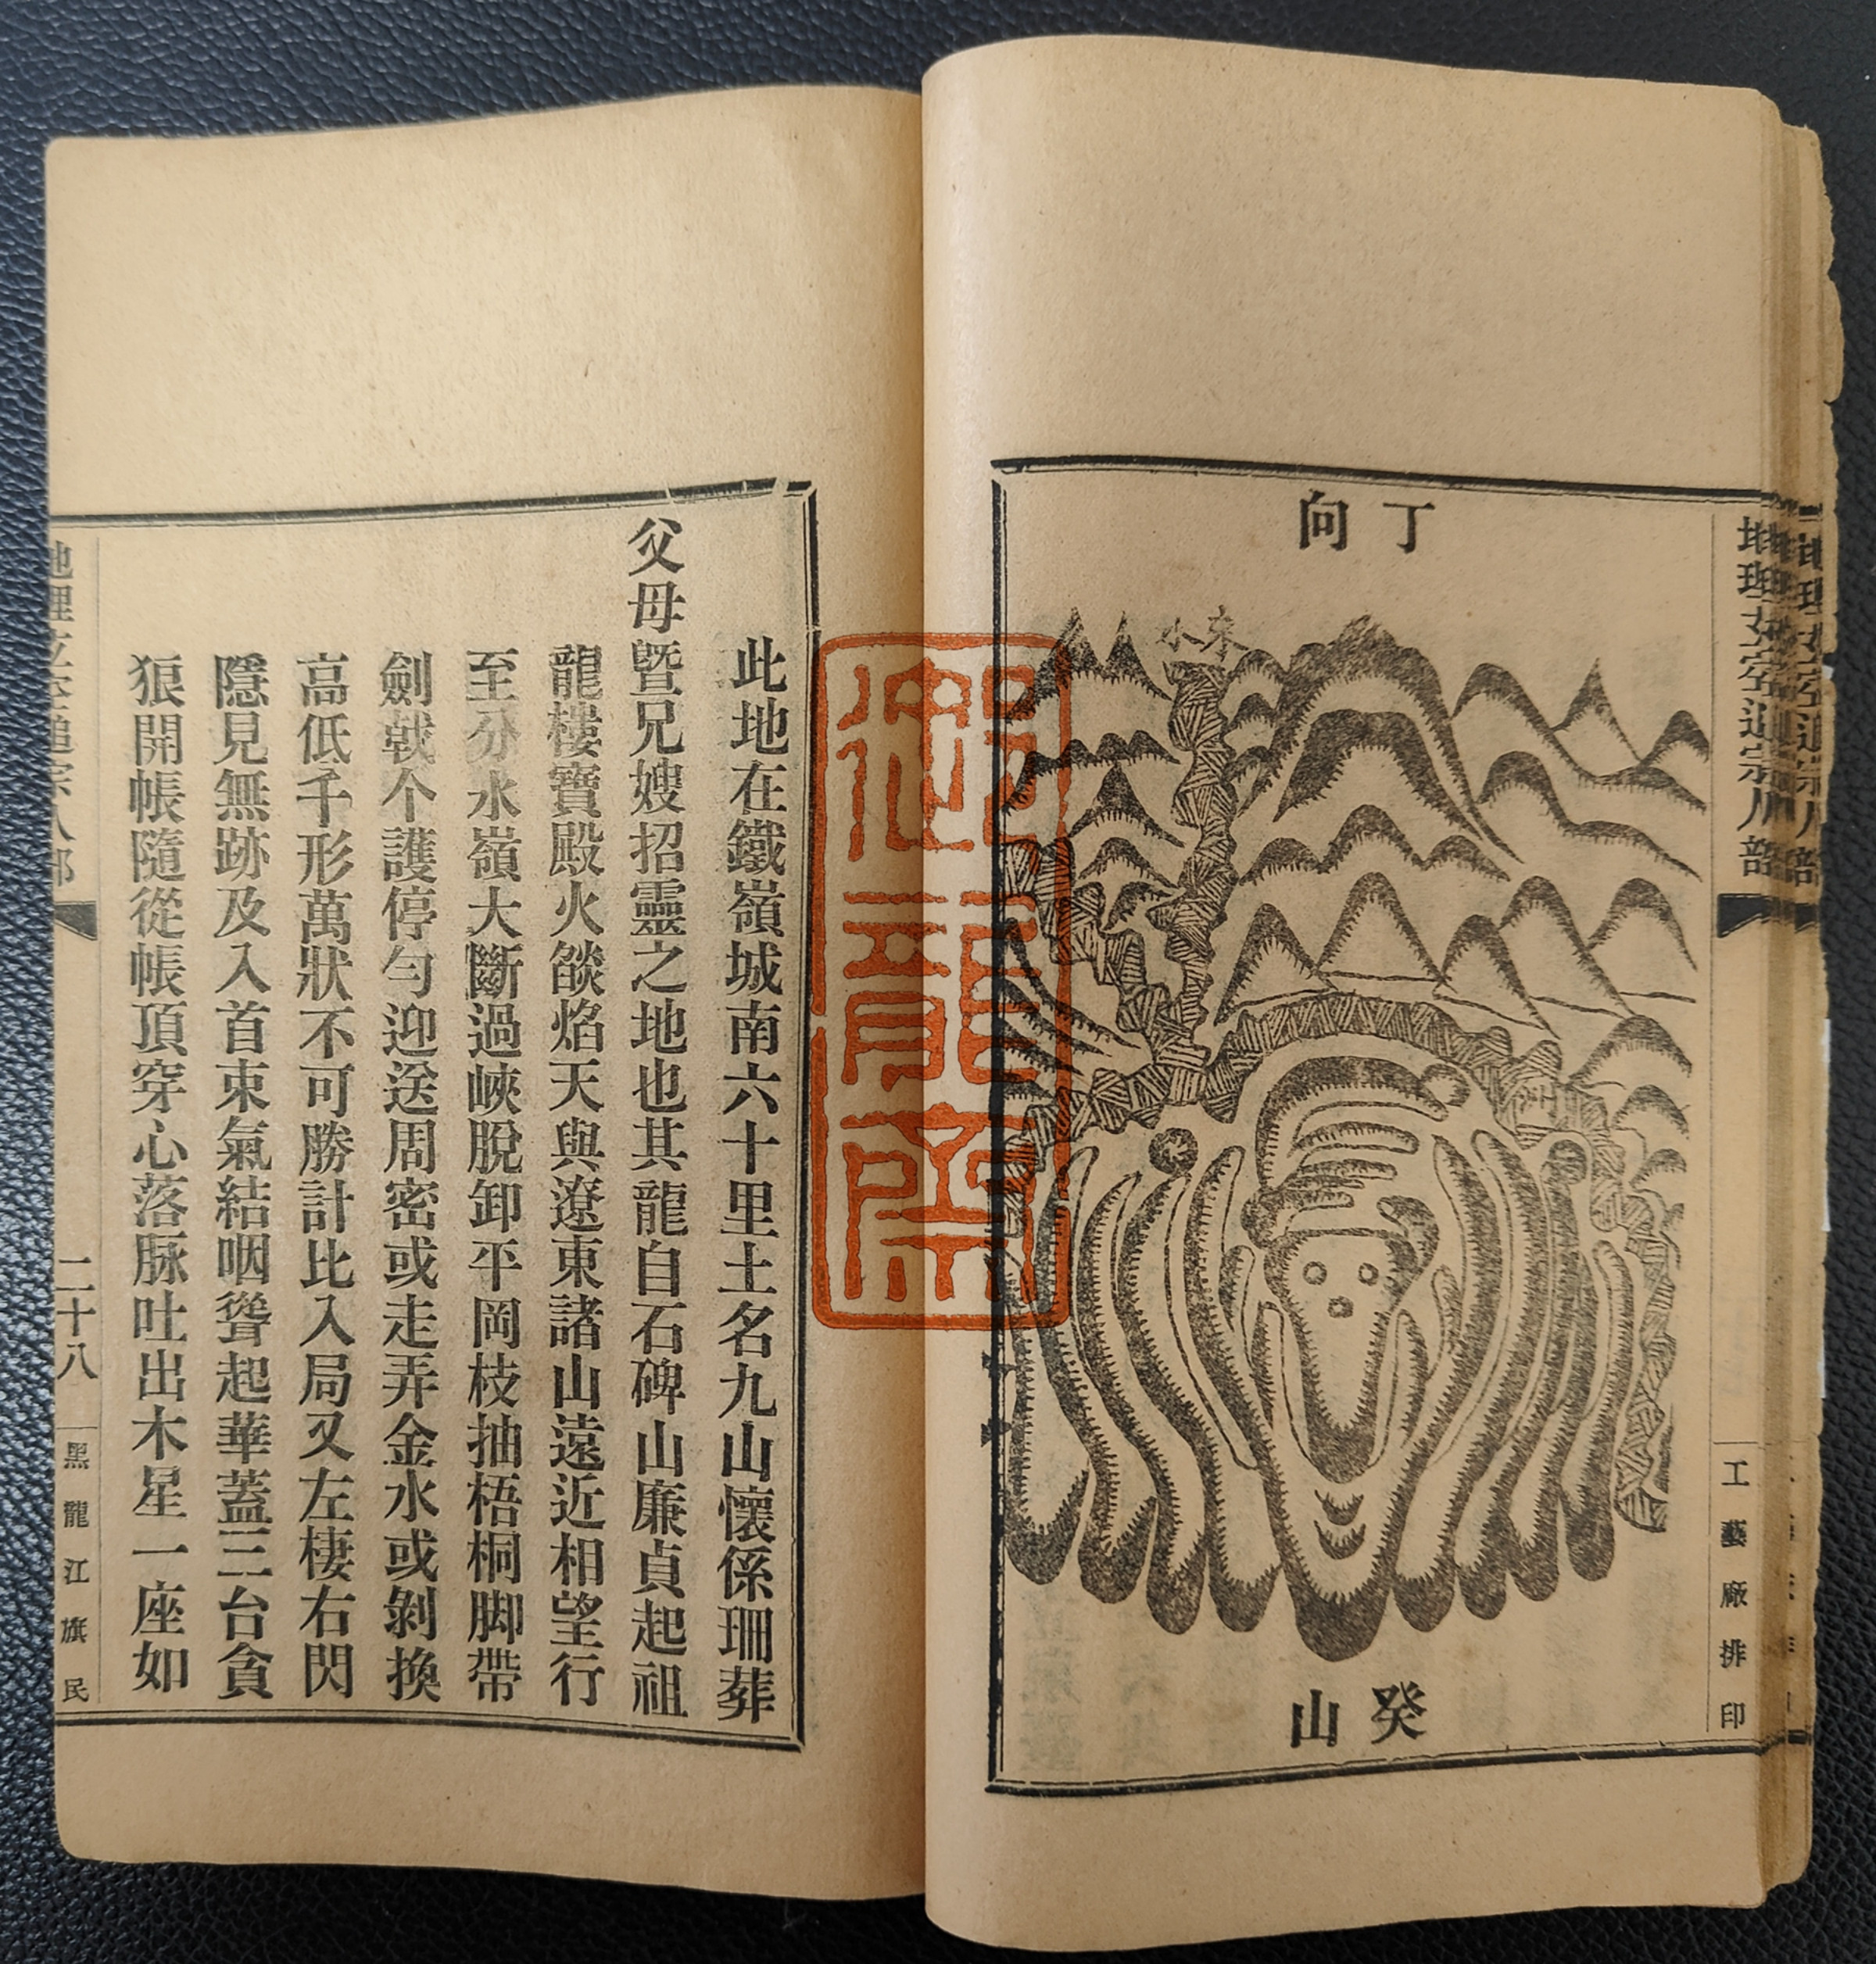 丁向
來水
癸山
地理玄空通宗八部
工藝廠排印
御龍齋
此地在鐵嶺城南六十里土名九山懷係珊葬
父母暨兄嫂招靈之地也其龍自石碑山廉貞起祖
龍樓寶殿火燄焰天與遼東諸山遠近相望行
至分水嶺大斷過峽脫卸平岡枝抽梧桐脚帶
劍戟个護停勻迎送周密或走弄金水或剝換
高低千形萬狀不可勝計比入局又左棲右閃
隱見無跡及入首束氣結咽聳起華蓋三台貪
狼開帳隨從帳頂穿心落脉吐出木星一座如
地理玄空通宗八部
二十八
黑龍江旗民